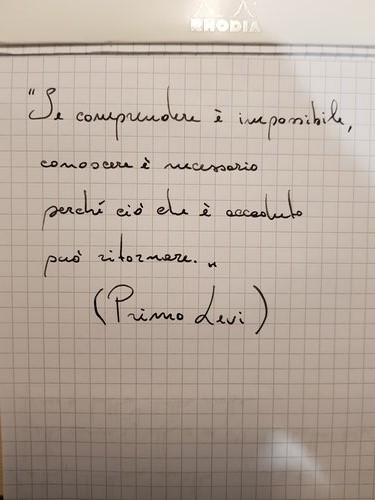 RHODIA
"Se comprendere è impossibile,
conoscere è necessario
perché ciò che è accaduto
può ritornare."
(Primo Levi)